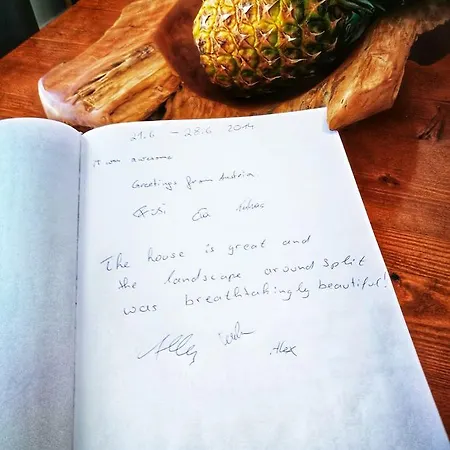 21.6 – 28.6. 2014
It was awesome
Greetings from Austria
The house is great and
the landscape around Split
was breathtakingly beautiful!
Alex